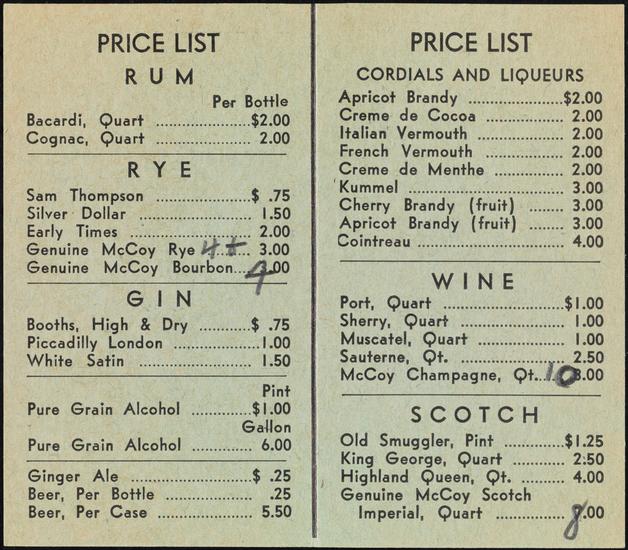 PRICE LIST
RUM
Per Bottle
Bacardi, Quart ..................$2.00
Cognac, Quart .................. 2.00
RYE
Sam Thompson ..................$ .75
Silver Dollar .................. 1.50
Early Times .................. 2.00
Genuine McCoy Rye 4 ........ 3.00
Genuine McCoy Bourbon... 4 .00
GIN
Booths, High & Dry ..........$ .75
Piccadilly London ..............1.00
White Satin .................. 1.50
Pint
Pure Grain Alcohol .............$1.00
Gallon
Pure Grain Alcohol ............. 6.00
Ginger Ale ..................$ .25
Beer, Per Bottle .................. .25
Beer, Per Case .................. 5.50
PRICE LIST
CORDIALS AND LIQUEURS
Apricot Brandy ..................$2.00
Creme de Cocoa .................. 2.00
Italian Vermouth .................. 2.00
French Vermouth .................. 2.00
Creme de Menthe .................. 2.00
Kummel .................. 3.00
Cherry Brandy (fruit) ........ 3.00
Apricot Brandy (fruit) ........ 3.00
Cointreau .................. 4.00
WINE
Port, Quart ..................$1.00
Sherry, Quart .................. 1.00
Muscatel, Quart .................. 1.00
Sauterne, Qt. .................. 2.50
McCoy Champagne, Qt...10 8.00
SCOTCH
Old Smuggler, Pint ............$1.25
King George, Quart ............ 2:50
Highland Queen, Qt. .......... 4.00
Genuine McCoy Scotch
Imperial, Quart .............. 8.00